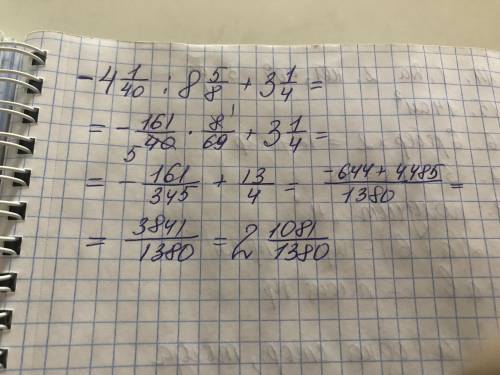 -4 1/40 : 8 5/8 + 3 1/4 =
= - 161/40 5 · 8 1/69 + 3 1/4 =
= - 161/345 + 13/4 = (-644 + 4485)/1380 =
= 3841/1380 = 2 1081/1380